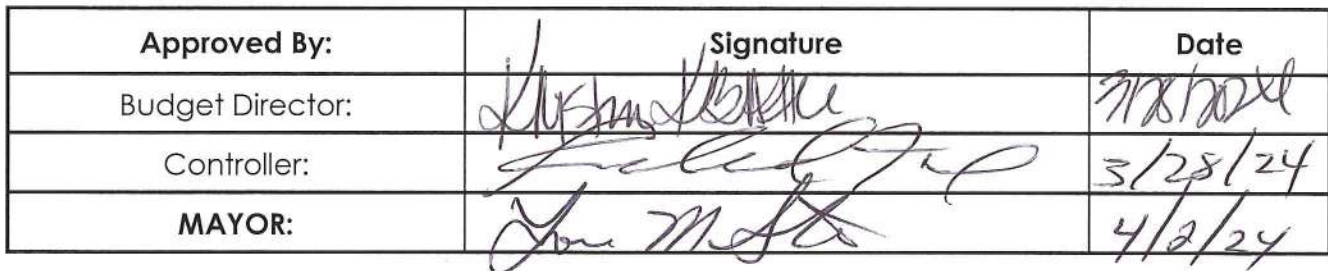 Approved By: Signature Date
Budget Director: 3/28/2024
Controller: 3/28/24
MAYOR: 4/2/24